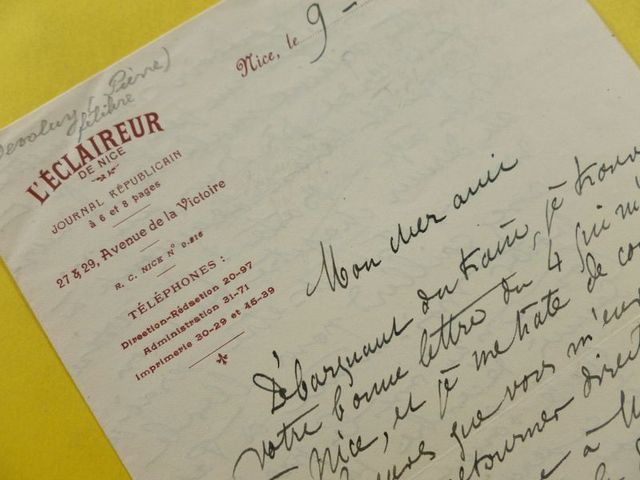 Devoluy (Pierre)
félibre
Nice, le 9-
L'ÉCLAIREUR
DE NICE
JOURNAL RÉPUBLICAIN
à 6 et 8 pages
27 & 29, Avenue de la Victoire
R. C. NICE N° 0.216
TÉLÉPHONES :
Direction-Rédaction 20-97
Administration 31-71
Imprimerie 30-29 et 45-39
Mon cher ami
Débarquant du train, je trouv
votre bonne lettre du 4 qui m'
Nice, et je me hate de co
que vous m'env
retourner direct
à